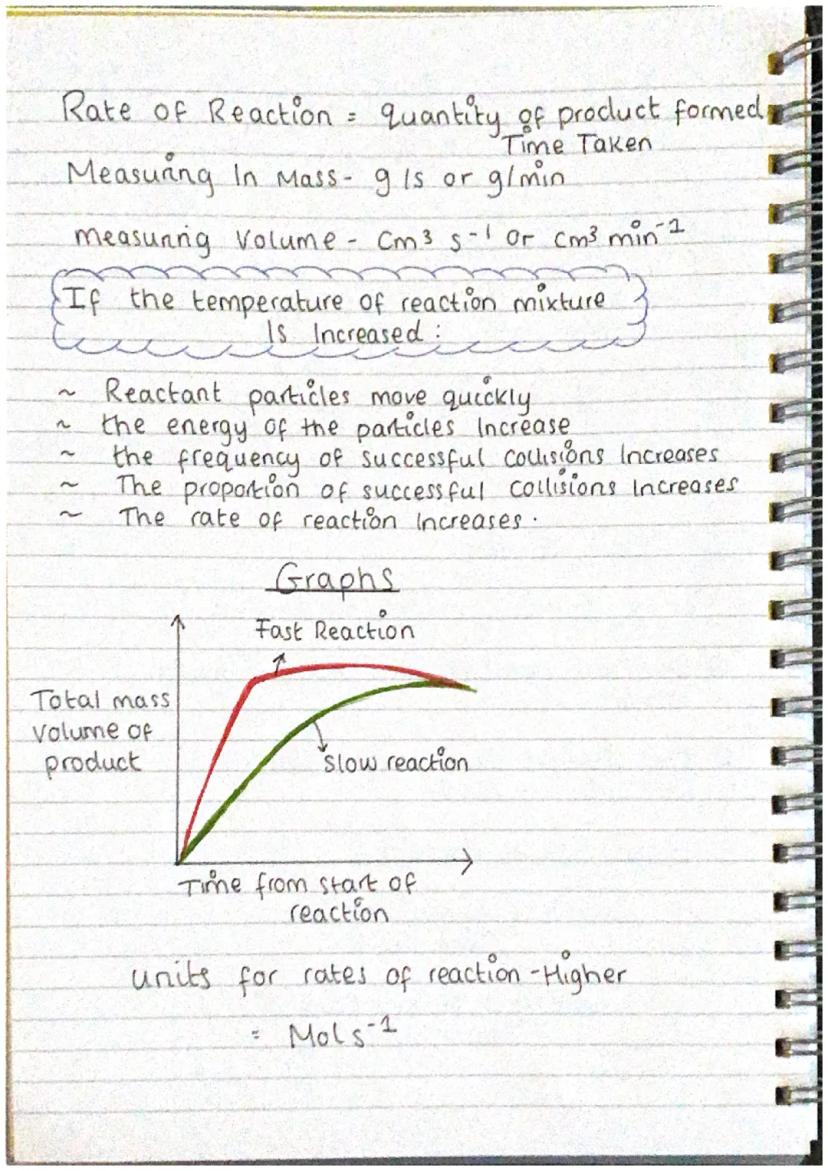 Rate of Reaction = quantity of product formed
Time Taken
Measuring In Mass- g/s or g/min
measuring Volume - Cm³ s⁻¹ Or cm³ min⁻¹
If the temperature of reaction mixture
Is Increased:
~ Reactant particles move quickly
~ the energy of the particles Increase
~ the frequency of successful collisions Increases
~ The proportion of successful collisions Increases
~ The rate of reaction Increases.
Graphs
Fast Reaction
Total mass
Volume of
product
Slow reaction
Time from start of
reaction
units for rates of reaction -Higher
= Mol s⁻¹